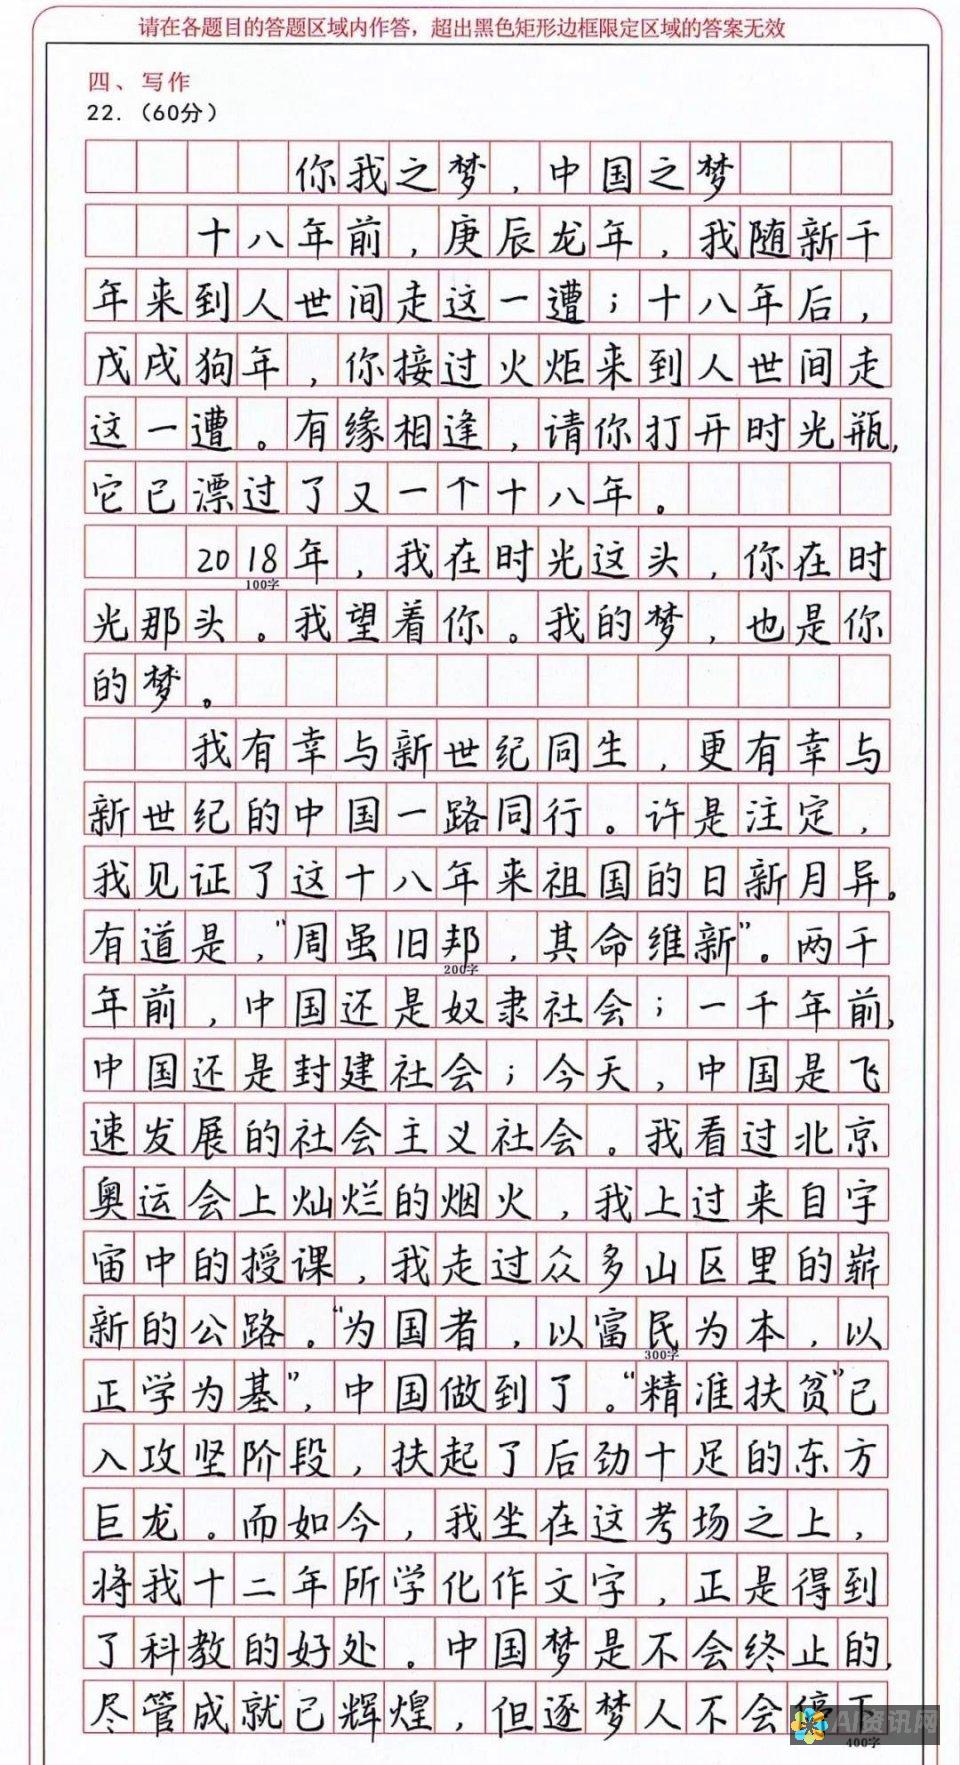 请在各题目的答题区域内作答，超出黑色矩形边框限定区域的答案无效
四、写作
22.（60分）
你我之梦，中国之梦
十八年前，庚辰龙年，我随新千
年来到人世间走这一遭；十八年后，
戊戌狗年，你接过火炬来到人世间走
这一遭。有缘相逢，请你打开时光瓶，
它已漂过了又一个十八年。
2018年，我在时光这头，你在时
100字
光那头。我望着你。我的梦，也是你
的梦。
我有幸与新世纪同生，更有幸与
新世纪的中国一路同行。许是注定，
我见证了这十八年来祖国的日新月异。
有道是，“周虽旧邦，其命维新”。两千
200字
年前，中国还是奴隶社会；一千年前，
中国还是封建社会；今天，中国是飞
速发展的社会主义社会。我看过北京
奥运会上灿烂的烟火，我上过来自宇
宙中的授课，我走过众多山区里的崭
新的公路。“为国者，以富民为本，以
300字
正学为基”，中国做到了。“精准扶贫”已
入攻坚阶段，扶起了后劲十足的东方
巨龙。而如今，我坐在这考场之上，
将我十二年所学化作文字，正是得到
了科教的好处。中国梦是不会终止的，
尽管成就已辉煌，但逐梦人不会停下
AI资讯网
400字